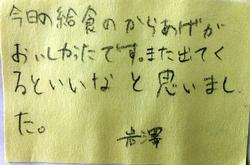 今日の給食のからあげが
おいしかったです。また出てく
るといいなと思いまし
た。
岩澤